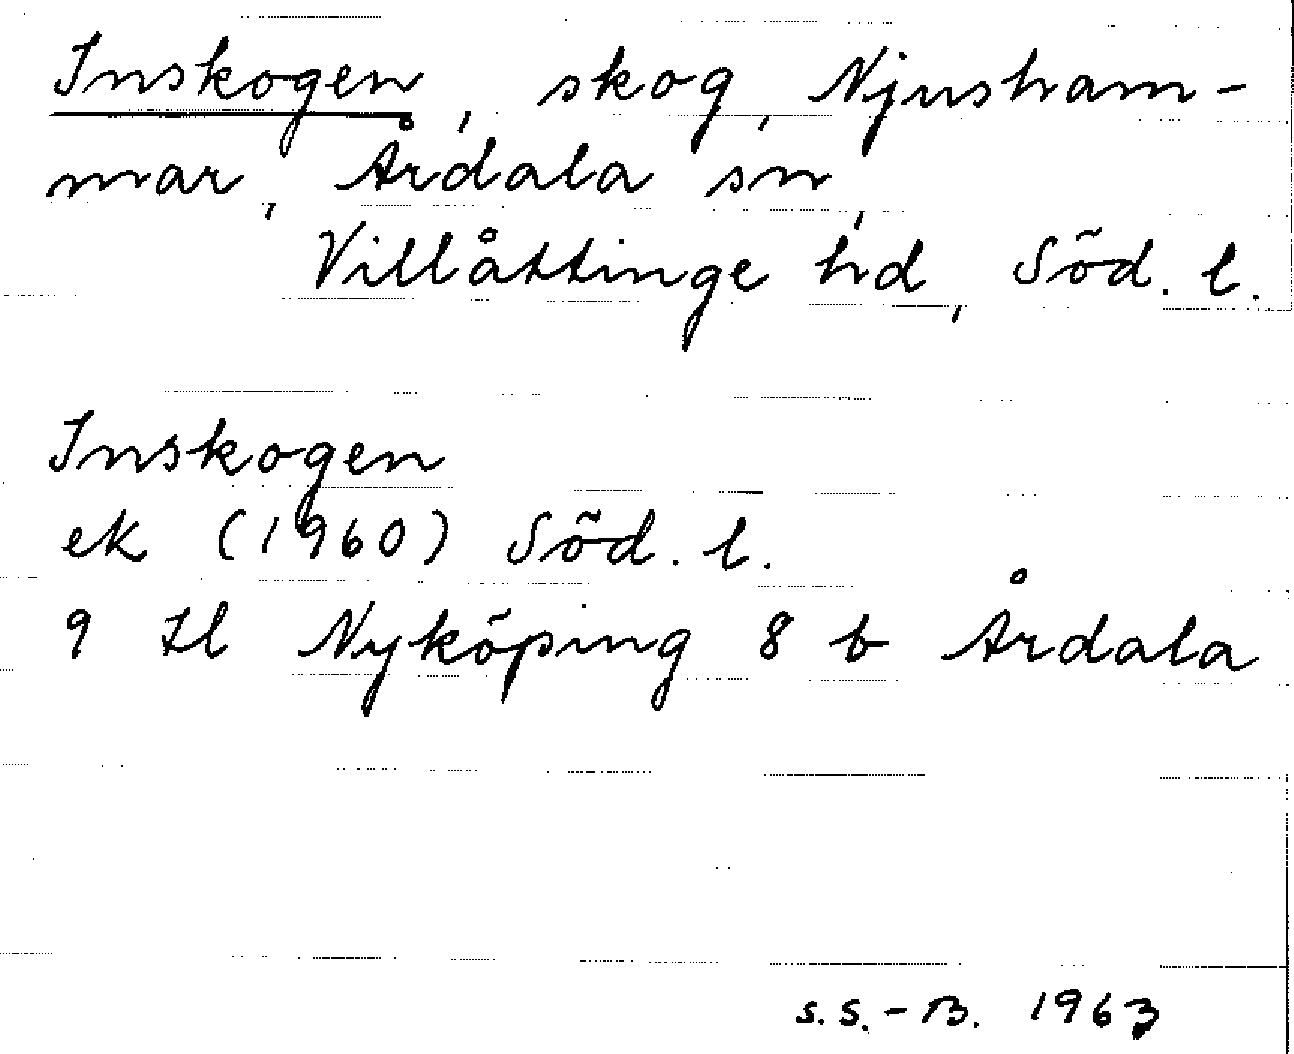 Inskogen, skog, Njusham-
mar, Årdala sn,
Villåttinge hd, Söd. l.
Inskogen
ek (1960) Söd. l.
9 Il Nyköping 8 b Årdala
S.S.-B. 1963